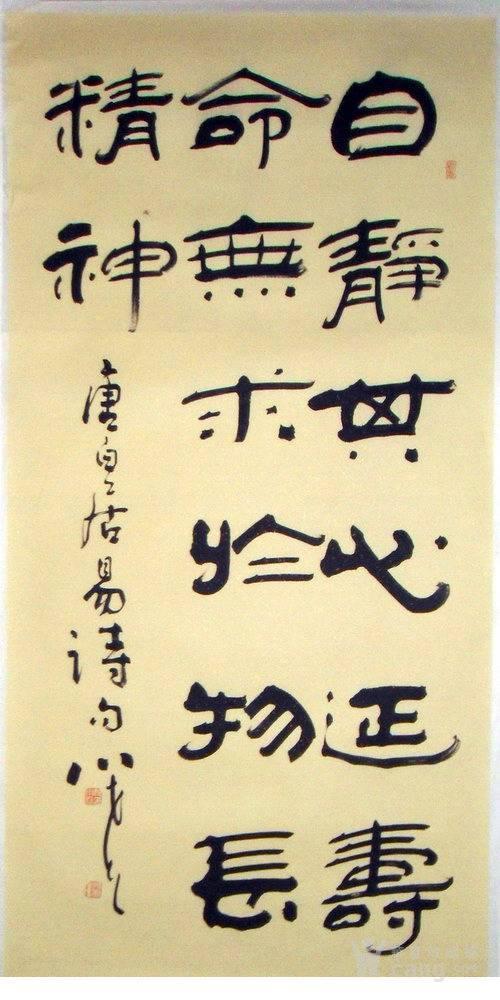 自靜其心延壽
命無求於物長
精神
唐白居易詩句